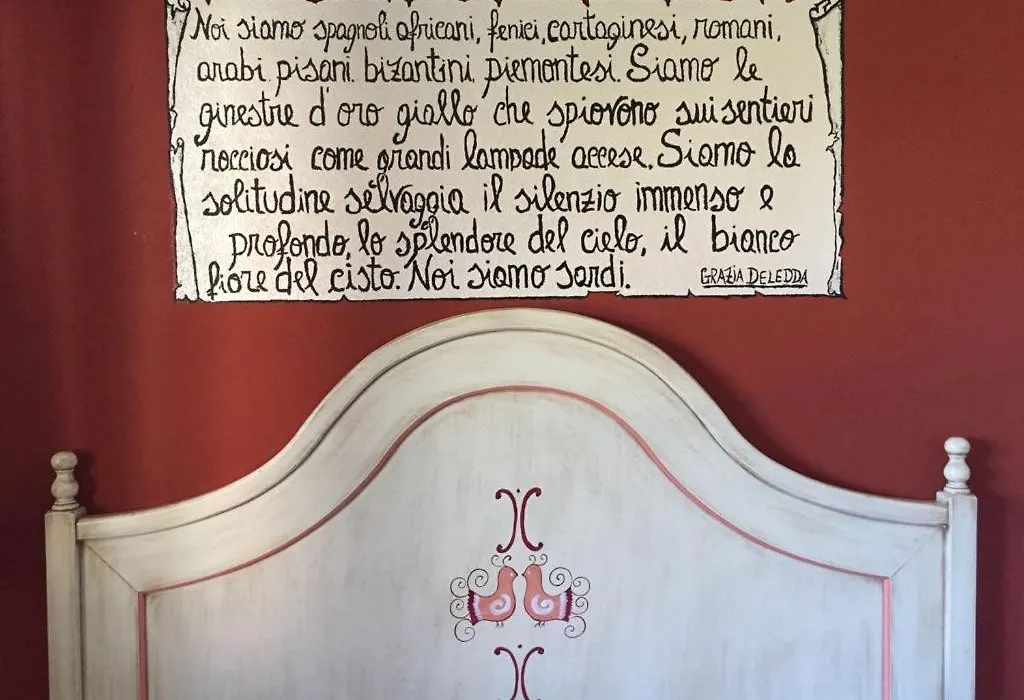 Noi siamo spagnoli africani, fenici, cartaginesi, romani,
arabi pisani bizantini piemontesi. Siamo le
ginestre d'oro giallo che spiovono sui sentieri
rocciosi come grandi lampade accese. Siamo la
solitudine selvaggia il silenzio immenso e
profondo, lo splendore del cielo, il bianco
fiore del cisto. Noi siamo sardi.
GRAZIA DELEDDA